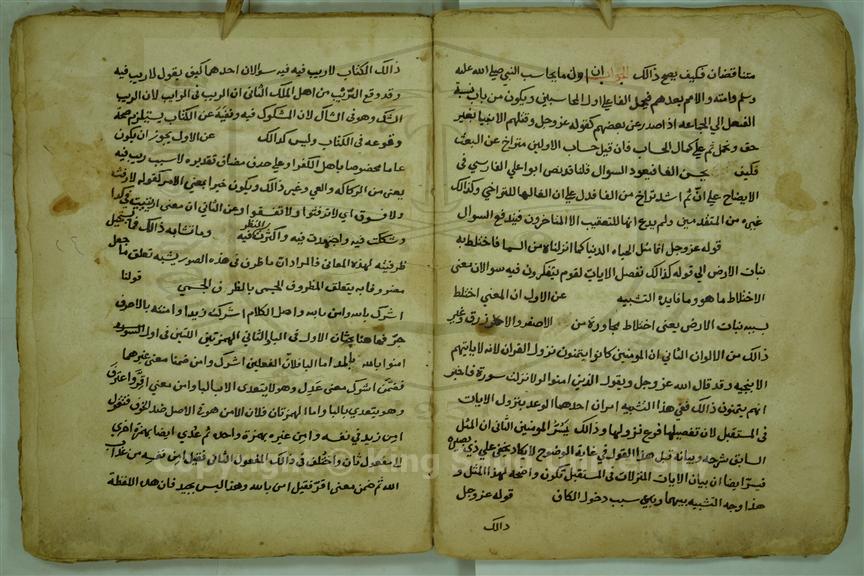 متناقضان فكيف يصح ذالك الجواب ان اول ما يحاسب النبي صلى الله عليه
وسلم وامته والامم بعدهم فجعل الفا على اول المحاسبين ويكون من باب نسبة
الفعل الى الجماعه اذ اصدر عن بعضهم كقوله عز وجل وقتلهم الانبيا بغير
حق وتحمل ثم على كمال الحساب فان قيل حساب الاولين متراخ عن البعث
فكيف يحسن الفا فيعود السوال قلنا قد نص ابو على الفارسي في
الايضاح على ان ثم اشد تراخ من الفا فدل على ان الفا لها للتراخي وكذالك
غيره من المتقدمين ولم يدع انها للتعقيب الا المتاخرون فيندفع السوال
قوله عز وجل انما مثل الحياه الدنيا كما انزلناه من السما فاختلط به
نبات الارض الى قوله كذالك نفصل الايات لقوم يتفكرون فيه سوالان معنى
الاختلاط ما هو وما فايدة التشبيه عن الاول ان المعني اختلط
بسببه نبات الارض يعنى اختلاط مجاورة من الاصفر والاحمر وزرق وغير
ذالك من الالوان الثاني ان المومنين كانوا يتمنون نزول القران لانه لا ياتيهم
وقد قال الله عز وجل ويقول الذين امنوا لولا نزلت سورة فاخبر
انهم يتمنون ذالك ففي هذا التشبيه امران احدهما الوعد بنزول الايات
في المستقبل لان تفصيلها فرع نزولها وذالك يسر المومنين الثاني ان المثل
السابق شرحه وبيانه قبل هذا القول في غاية الوضوح لا يكاد يخفى على ذي بصيرة
ايضا ان بيان الايات المنزلات في المستقبل تكون واضحه لهذا المثل و
هذا وجه التشبيه بينهما وبين سبب دخول الكاف قوله عز وجل
ذالك
ذالك الكتاب لا ريب فيه فيه سوالان احدهما كيف يقول لا ريب فيه
وقد وقع الريب من اهل الملك الثاني ان الريب في الرايب لان الريب
الشك وهو في الشاك لان المشكوك فيه وقيته عن الكتاب يستلزم صحة
وقوعه في الكتاب وليس كذالك عن الاول يجوز ان يكون
عاما مخصوصا باهل الكفر او على حذف مضاف تقديره لا سبب ريب فيه
يعنى من الركاكه والعي وغير ذالك ويكون خبرا بمعنى الامر كقوله لا رفث
ولا فسوق اي لا ترفثوا ولا تفسقوا وعن الثاني ان معنى ارتبت في كذا
وشككت فيه واجتهدت فيه واكثرت النظر فيه وما شابه ذالك فانه يستحيل
ظرفيته لهذه المعاني فالمراد ان ما ظرف في هذه الصور يشبه تعلق ما جعل
مضروفا به بتعلق المظروف الجسمي بالظرف الجسمي قولنا
اشرك بالله وامن بالله واهل الكلام اشركت زيدا وامنته بالاحرف
جر فهاهنا بحثان الاول في البا الثاني الهمزتين اللتين في اول السوره
امنوا بالله بالمد اما البا فلان الفعلين اشرك وامن ضمنا معنى غيرهما
فضمن اشرك معنى عدل وهو لا يتعدى الا بالبا وامن معنى اقر او اعترف
وهو يتعدى بالبا واما الهمزتان فلان الامن هو في الاصل ضد الخوف فتقول
امن زيد في نفسه وامن غيره بهمزة واحده ثم عدي ايضا بهمزة اخرى
لمفعول ثان واختلف في ذالك المفعول الثاني فقيل امن نفسه من عذاب
الله ثم ضمن معنى اقر فقيل امن بالله وهذا ليس بجيد فان هذ اللفظة